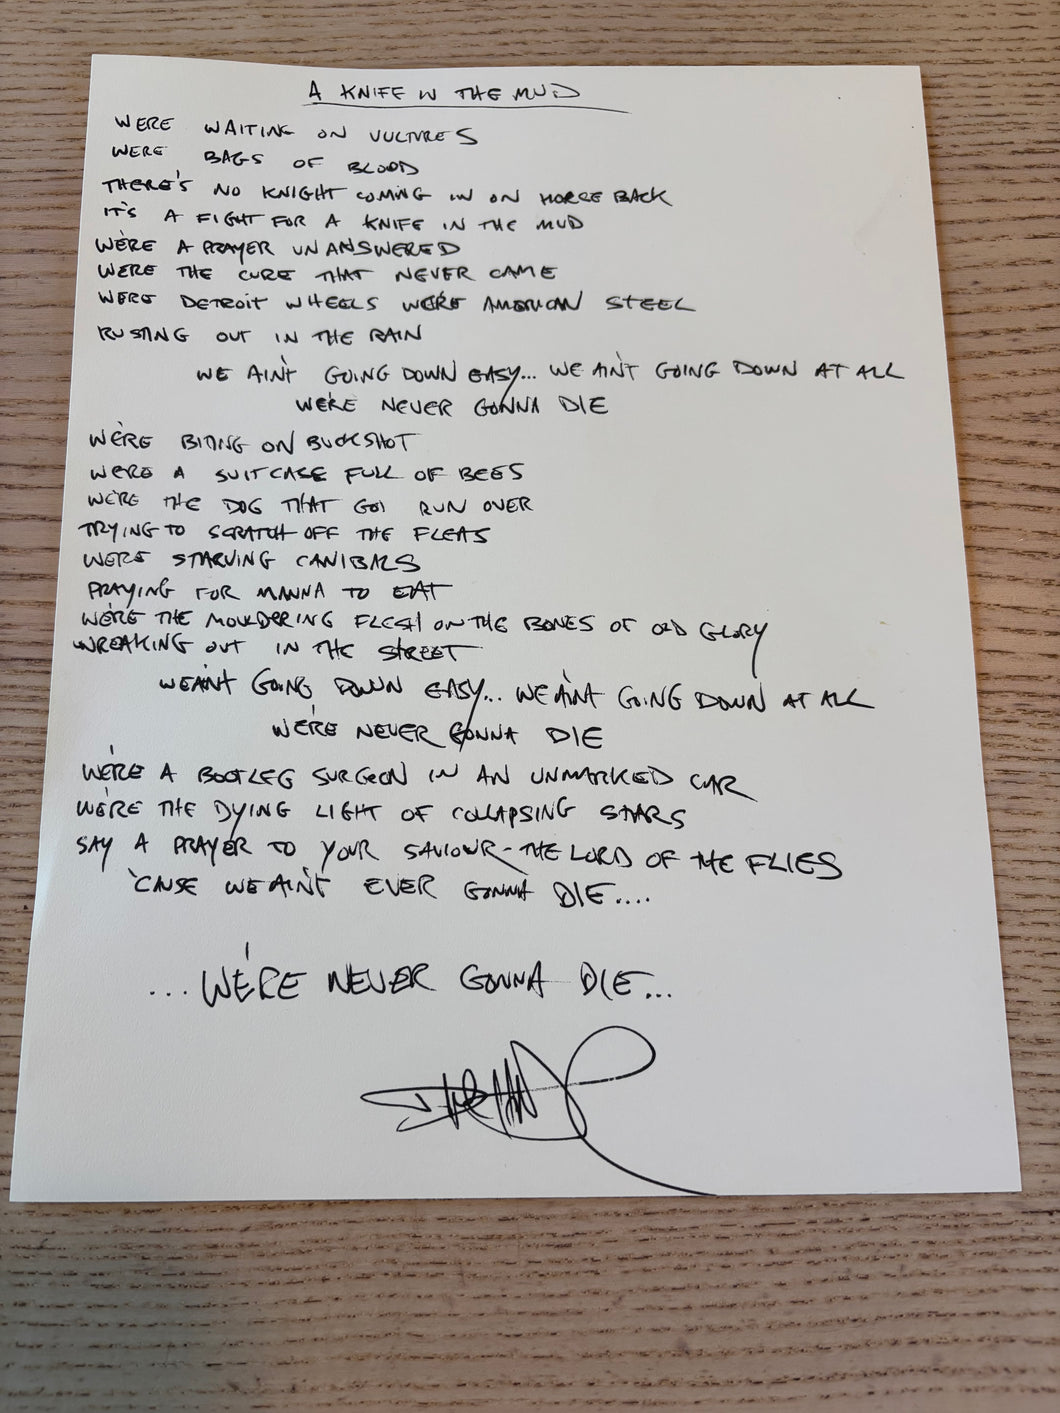 A KNIFE IN THE MUD
WERE WAITING ON VULTURES
WERE BAGS OF BLOOD
THERE'S NO KNIGHT COMING IN ON HORSE BACK
IT'S A FIGHT FOR A KNIFE IN THE MUD
WE'RE A PRAYER UNANSWERED
WERE THE CURE THAT NEVER CAME
WERE DETROIT WHEELS WE'RE AMERICAN STEEL
RUSTING OUT IN THE RAIN
WE AIN'T GOING DOWN EASY... WE AIN'T GOING DOWN AT ALL
WE'RE NEVER GONNA DIE
WE'RE BITING ON BUCKSHOT
WERE A SUITCASE FULL OF BEES
WE'RE THE DOG THAT GOT RUN OVER
TRYING TO SCRATCH OFF THE FLEAS
WERE STARVING CANIBALS
PRAYING FOR MANNA TO EAT
WE'RE THE MOULDERING FLESH ON THE BONES OF OLD GLORY
WREAKING OUT IN THE STREET
WE AINT GOING DOWN EASY... WE AINT GOING DOWN AT ALL
WE'RE NEVER GONNA DIE
WE'RE A BOOTLEG SURGEON IN AN UNMARKED CAR
WE'RE THE DYING LIGHT OF COLLAPSING STARS
SAY A PRAYER TO YOUR SAVIOUR - THE LORD OF THE FLIES
'CAUSE WE AIN'T EVER GONNA DIE....
...WE'RE NEVER GONNA DIE...